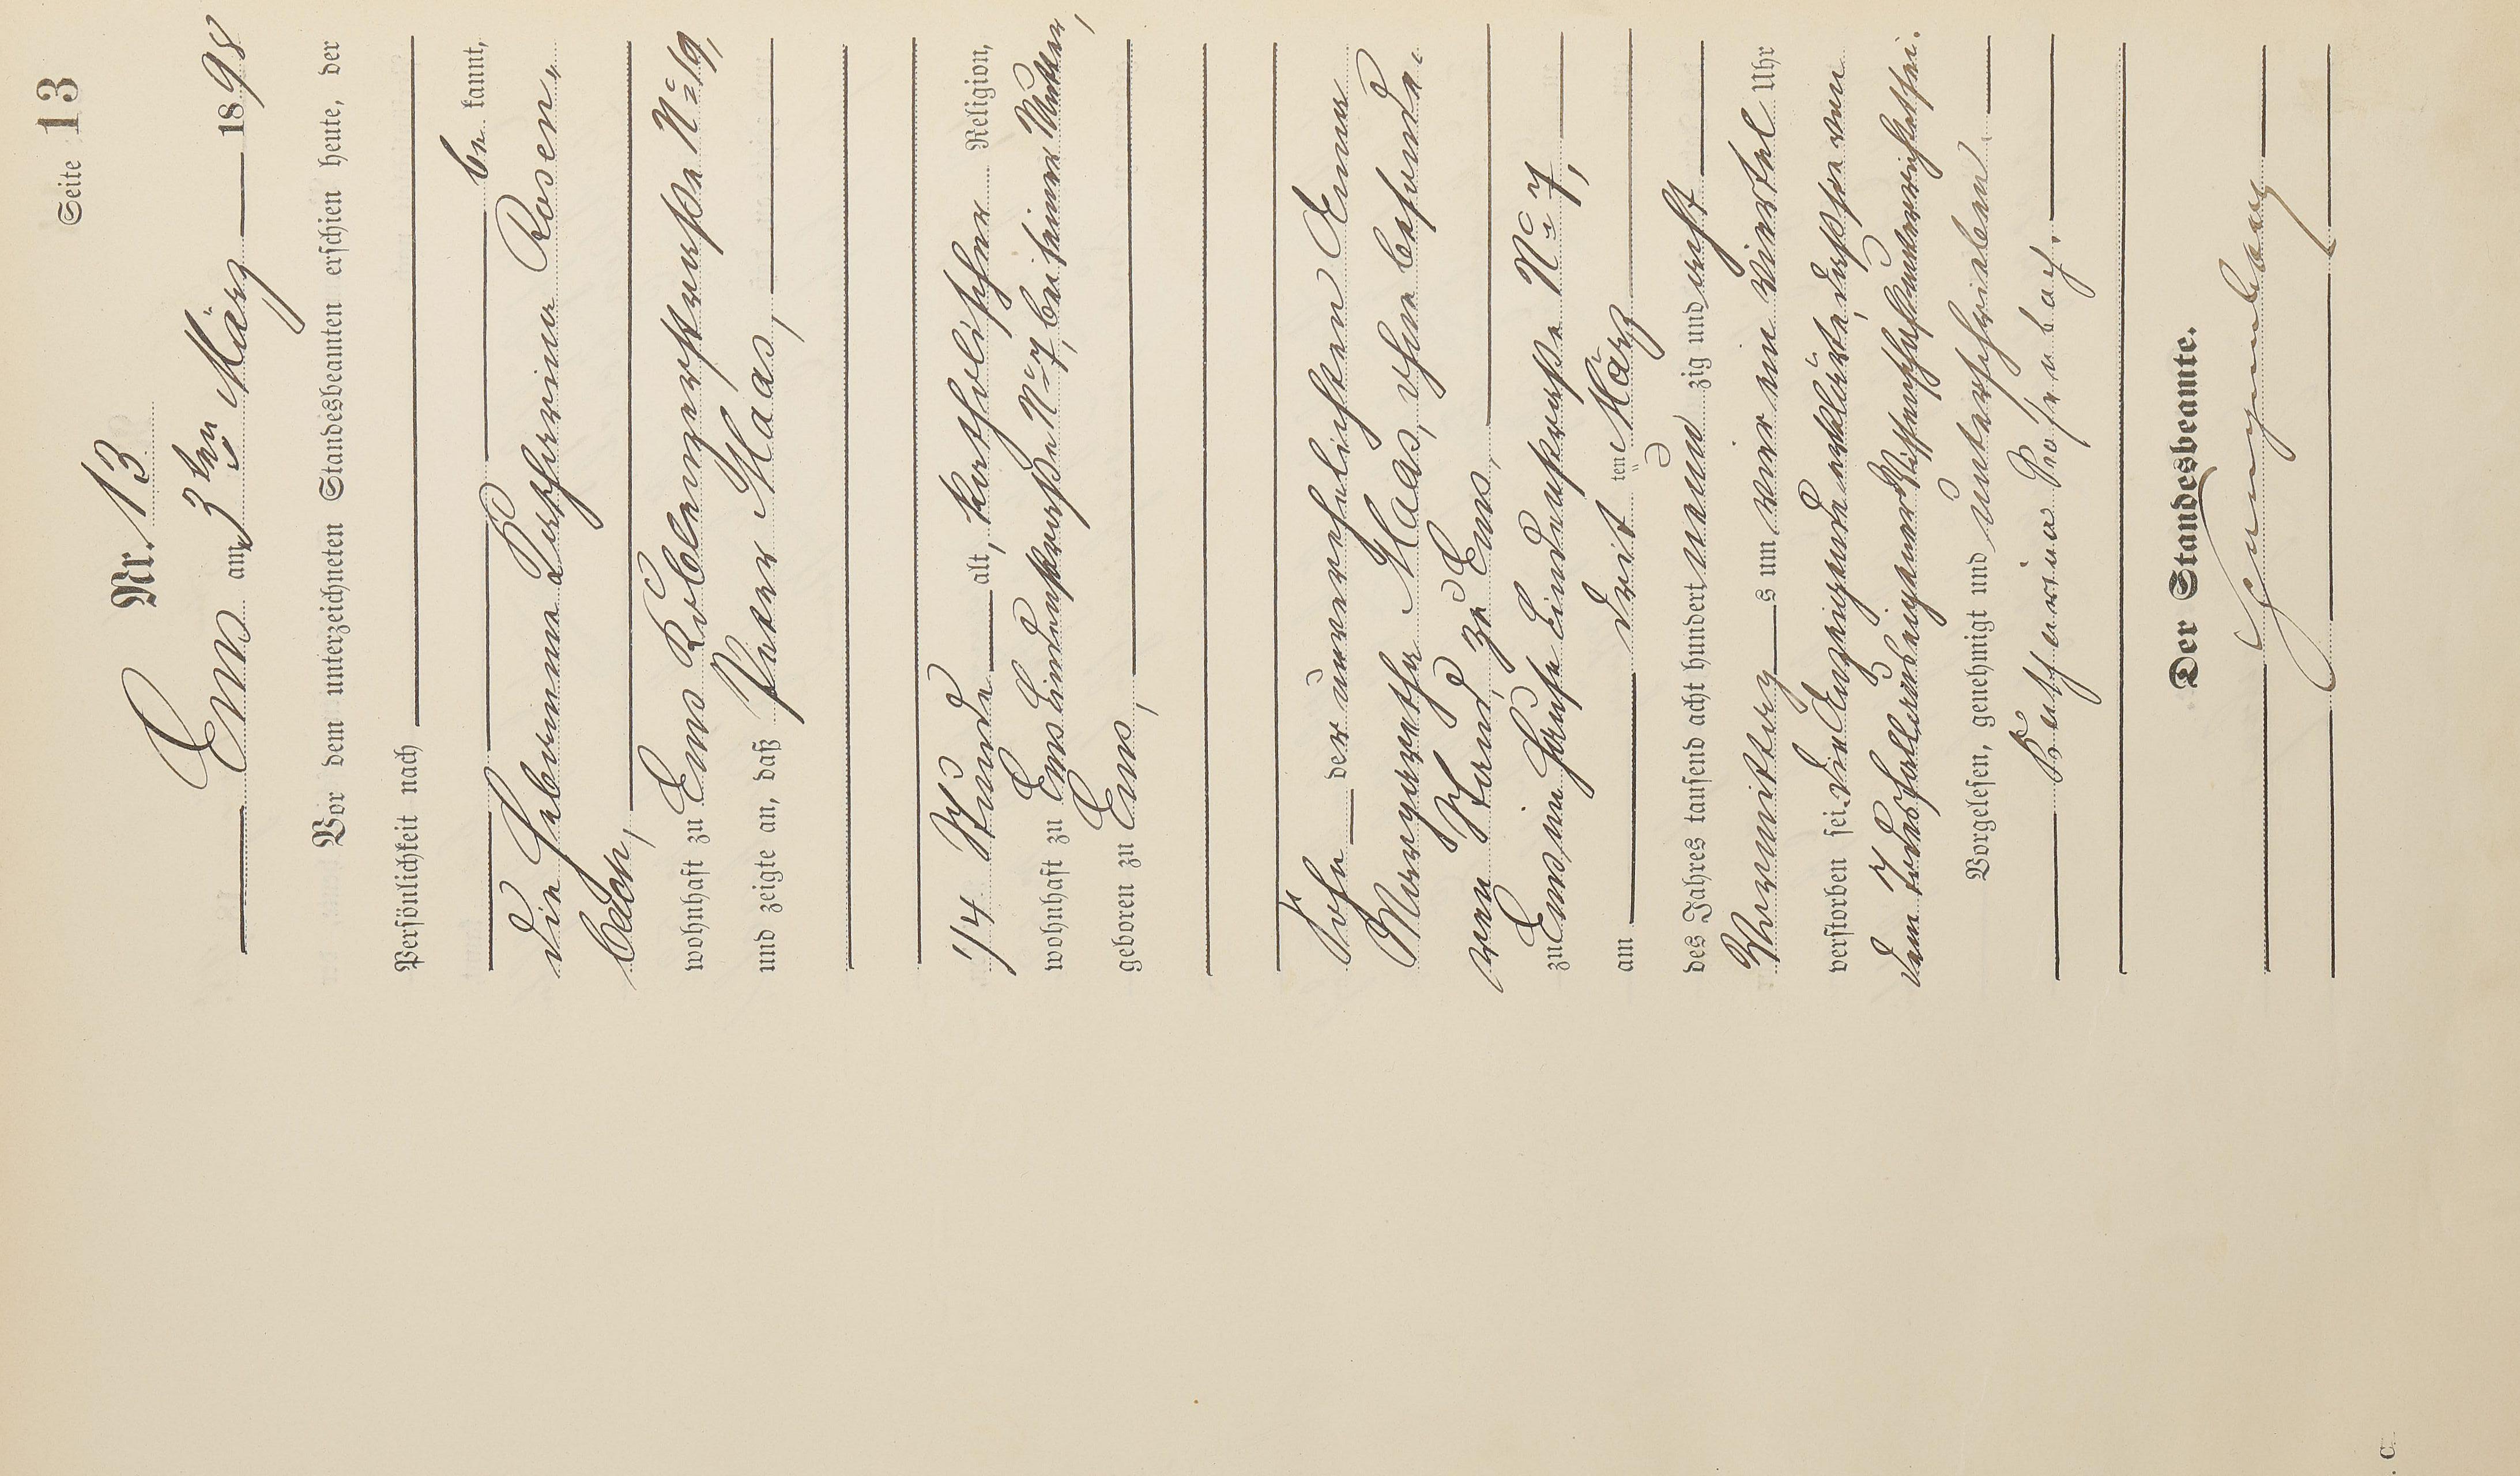 Seite 13
Nr. 13.
Ems am 3ten März 1898
Vor dem unterzeichneten Standesbeamten erschien heute, der
Persönlichkeit nach
be kannt,
die Hebamme Katharina Rosen„
bach,
wohnhaft zu Ems Koblenzerstraße No 19,
und zeigte an, daß Peter Maas,
1/4 Stunde alt, katholischer Religion,
wohnhaft zu Ems Lindenstraße No 7, bei seiner Mutter,
geboren zu Ems,
Sohn der unverehelichten Anna
Margaretha Maas, ohne besonde„
ren Stand, zu Ems,
zu Ems, im Hause Lindenstraße No 7,
am drit ten März
des Jahres tausend acht hundert neun zig und acht
Vormittag s um vier ein viertel Uhr
verstorben sei. Die Anzeigende erklärte, daß sie von
dem Todesfalle aus eigener Wissenschaft unterrichtet sei.
Vorgelesen, genehmigt und unterschrieben
Katharina Rosenbach.
Der Standesbeamte.